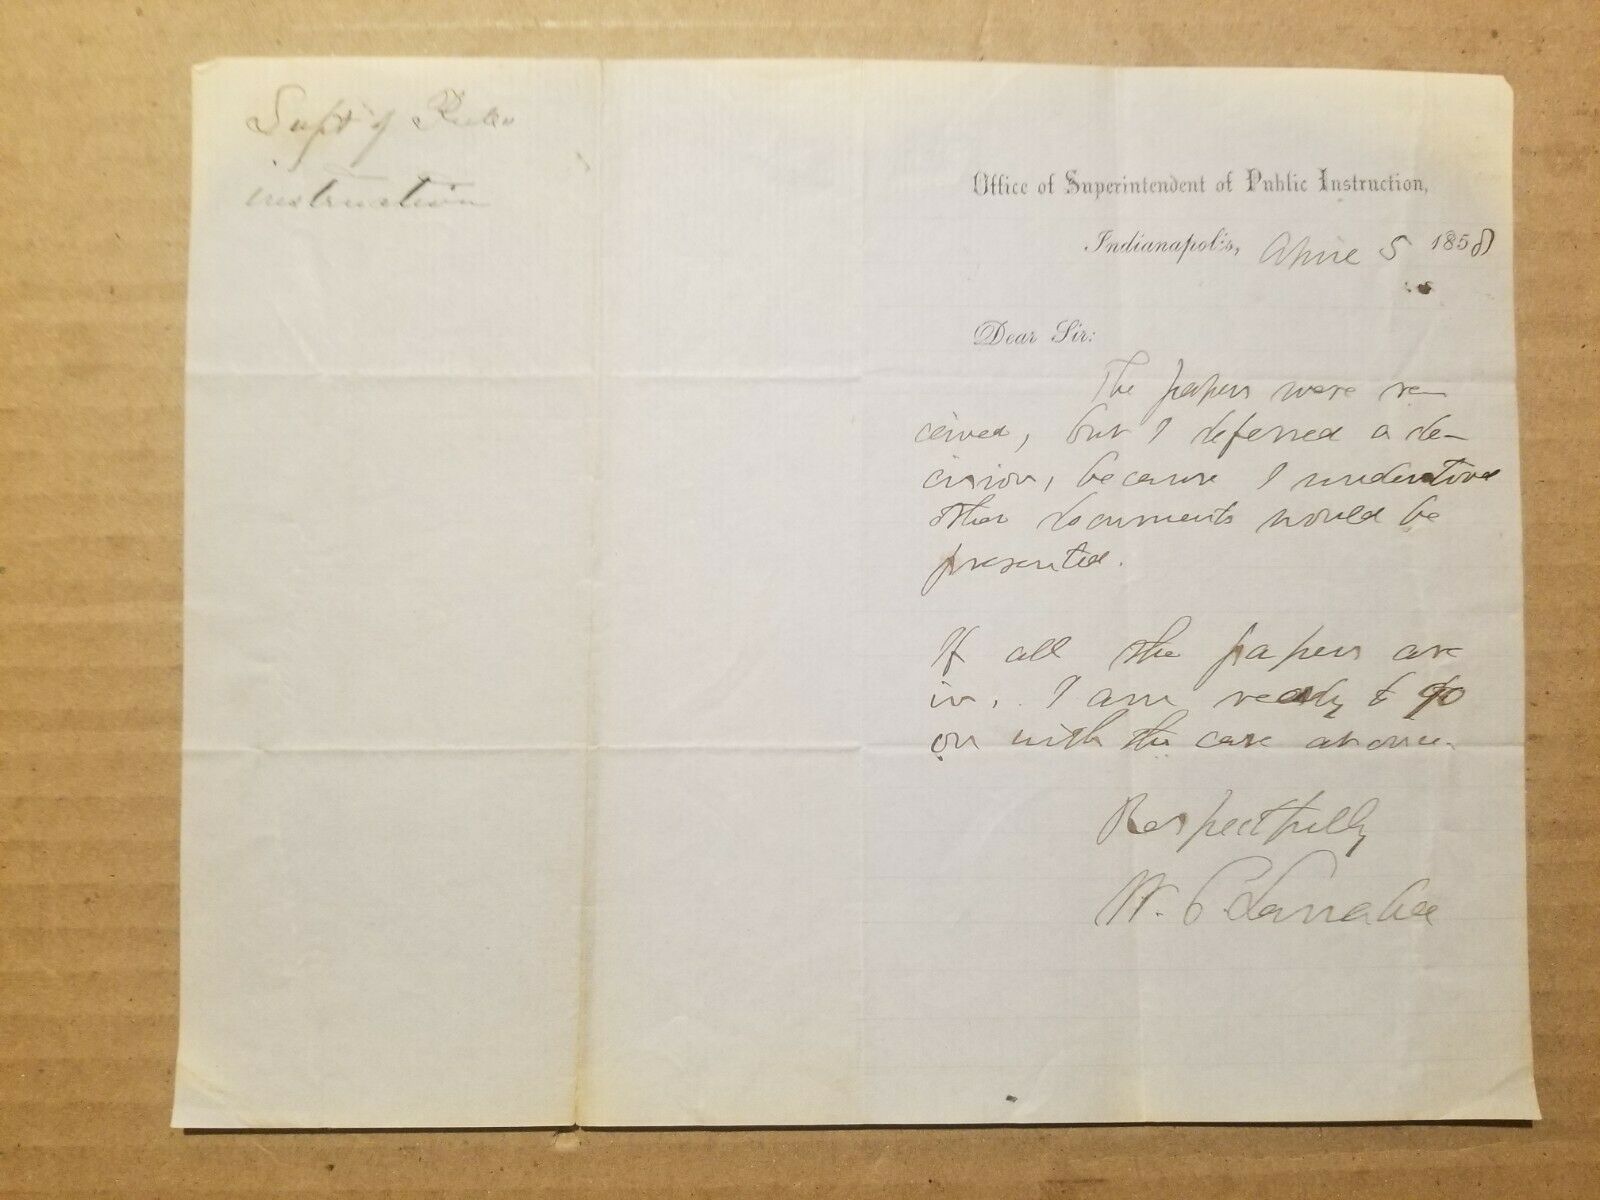 Supt of Public
instruction
Office of Superintendent of Public Instruction,
Indianapolis, April 5 1858
Dear Sir:
The papers were re-
ceived, but I deferred a de-
cision, because I understood
other documents would be
presented.
If all the papers are
in, I am ready to go
on with the case at once.
Respectfully
W. C. Larrabee